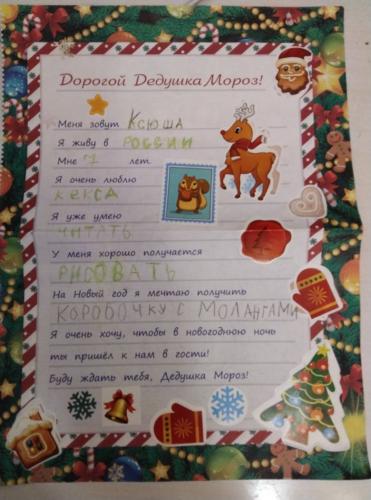 Дорогой Дедушка Мороз!
Меня зовут Ксюша
Я живу в РОССИИ
Мне 7 лет
Я очень люблю
КЕКСА
Я уже умею
ЧИТАТЬ
У меня хорошо получается
РИСОВАТЬ
На Новый год я мечтаю получить
КОРОБОЧКУ С МОЛАНГАМИ
Я очень хочу, чтобы в новогоднюю ночь
ты пришёл к нам в гости!
Буду ждать тебя, Дедушка Мороз!